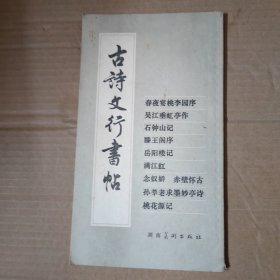 古诗文行書帖
春夜宴桃李园序
吴江垂虹亭作
石钟山记
滕王阁序
岳阳楼记
满江红
念奴娇 赤壁怀古
孙莘老求墨妙亭诗
桃花源记
湖南美术出版社